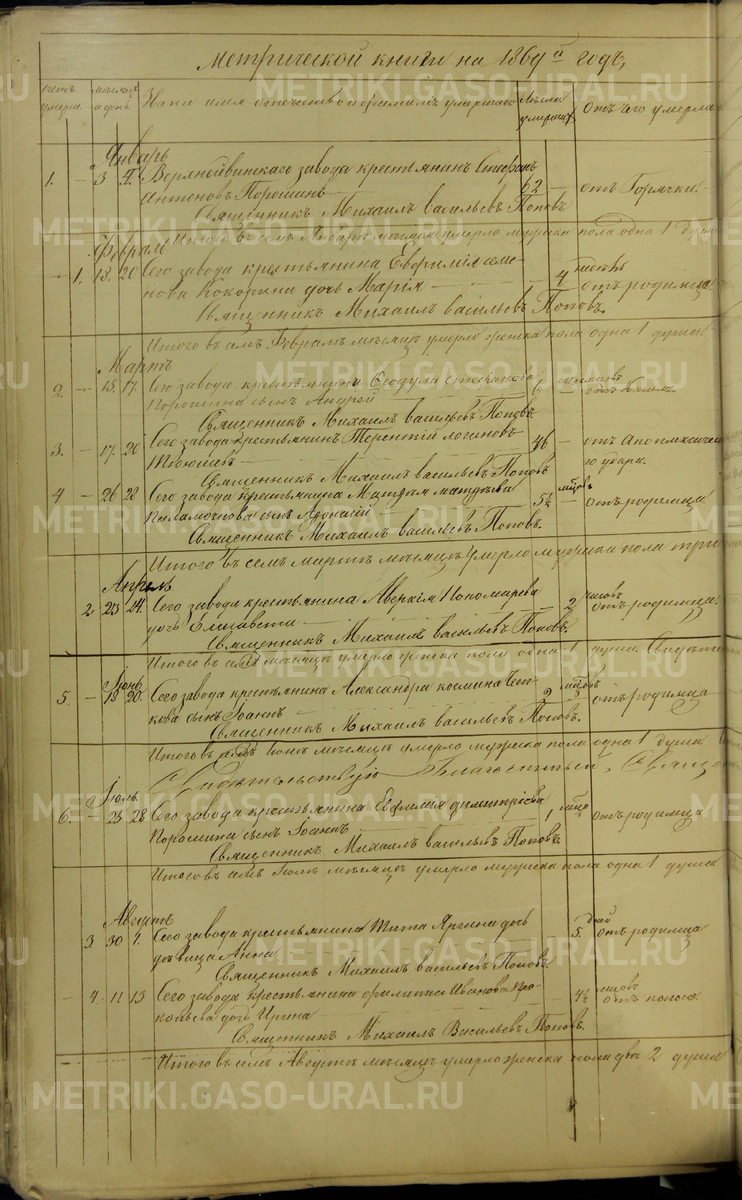 Метрической книги на 1869й годъ,
счетъ мѣсяцъ Званіе имя отечество и фамилія умершаго Лѣта отъ чего умеръ
умерш. и день умершаго
Январь
1. — 3 4. Верхнейвинскаго завода крестьянинъ Стефанъ 62 — отъ Горячки.
Порошинъ
Священникъ Михаилъ Васильевъ Поповъ
Итого въ семъ Январѣ мѣсяцѣ умерло мужска пола одна 1 душа
Февраль
— 1. 18. 20 Сего завода крестьянина Евфимія Семе- 4 недель
нова Кокорина дочь Марія — отъ родимца.
Священникъ Михаилъ Васильевъ Поповъ.
Итого въ семъ Февралѣ мѣсяцѣ умерло женска пола одна 1 душа
Мартъ
2. — 15 17. Сего завода крестьянина Феодула Стефанова 6 мѣсяцовъ
Порошина сынъ Андрей
Священникъ Михаилъ Васильевъ Поповъ.
3. — 17. 20 Сего завода крестьянинъ Терентій Логиновъ 46 — отъ Апоплексичес-
го удара.
Священникъ Михаилъ Васильевъ Поповъ
4 — 26 28 Сего завода крестьянина Матвѣя 5½ мѣсцовъ
сынъ Афонасій — отъ родимца
Священникъ Михаилъ Васильевъ Поповъ.
Итого въ семъ мартѣ мѣсяцѣ умерло мужска пола три
Апрель
2 23 24. Сего завода крестьянина Аверкія Пономарева 2 часовъ
дочь Елисавета — отъ родимца.
Священникъ Михаилъ Васильевъ Поповъ.
Итого въ семъ мѣсяцѣ умерло женска пола одна 1 душа
Іюнь
5. — 18 20. Сего завода крестьянина Александра Космина 2 мѣсцовъ
кова сынъ Іоаннъ — отъ родимца
Священникъ Михаилъ Васильевъ Поповъ.
Итого въ семъ Іюнѣ мѣсяцѣ умерло мужска пола одна 1 душа
Свидѣтельствую Благочинный, Священ
Іюль
6. — 23 28 Сего завода крестьянина Евфимія Димитріева 1 мѣсца
Порошина сынъ Іоаннъ — отъ родимца
Священникъ Михаилъ Васильевъ Поповъ.
Итого въ семъ Іюлѣ мѣсяцѣ умерло мужска пола одна 1 душа
Августъ
3 30 1. Сего завода крестьянина Тита Яргина дочь 5 дней
дѣвица Анна отъ родимца
Священникъ Михаилъ Васильевъ Поповъ.
— 4. 11 13 Сего завода крестьянина Филиппа Иванова Про- 4½ мѣсцовъ
копьева дочь Ирина — отъ поноса.
Священникъ Михаилъ Васильевъ Поповъ.
Итого въ семъ Августѣ мѣсяцѣ умерло женска пола двѣ 2 души
METRIKI.GASO-URAL.RU